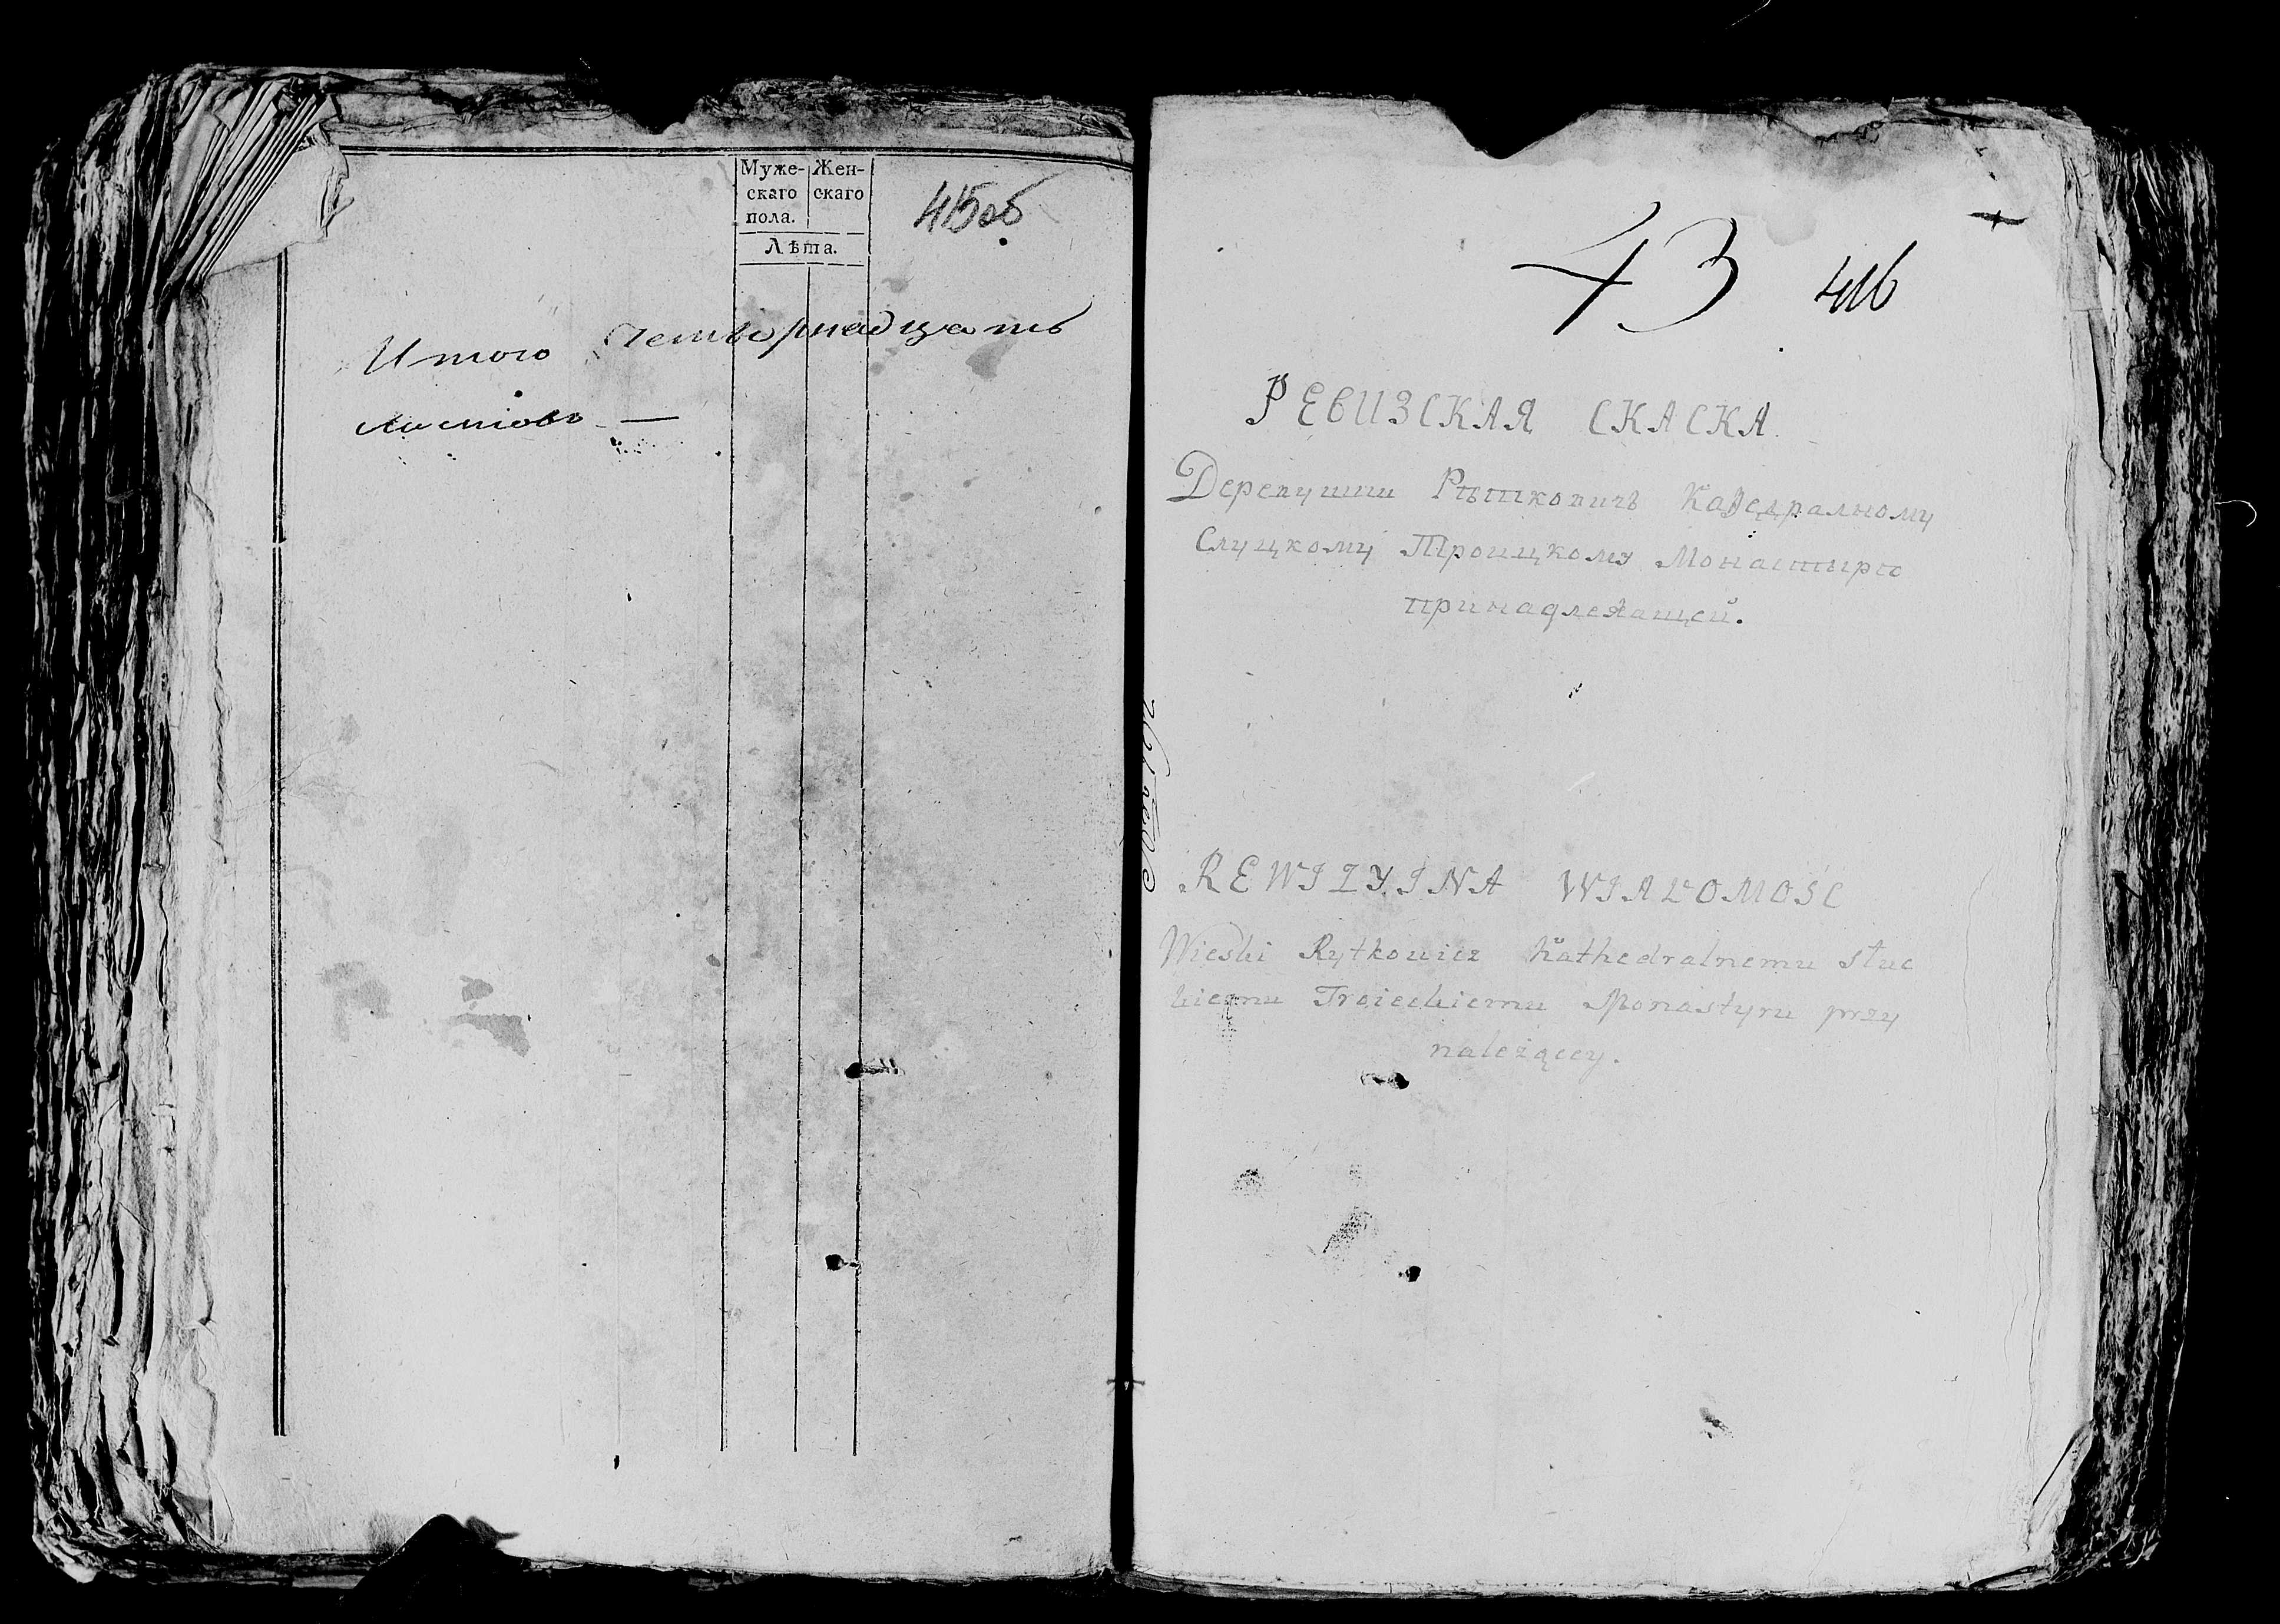 Муже- Жен-
скаго скаго
пола.
Лѣта.
415об
Итого Четырнадцать
листовъ —
43 416
РЕВИЗСКАЯ СКАСКА.
Деревушки Рытковичъ Кафедралному
Слуцкому Троицкому Монастырю
принадлежащей.
REWIZYINA WIADOMOŚC
Wioski Rytkowicz Kathedralnemu słuc
kiemu Troieckiemu Monastyru przy
należącey.